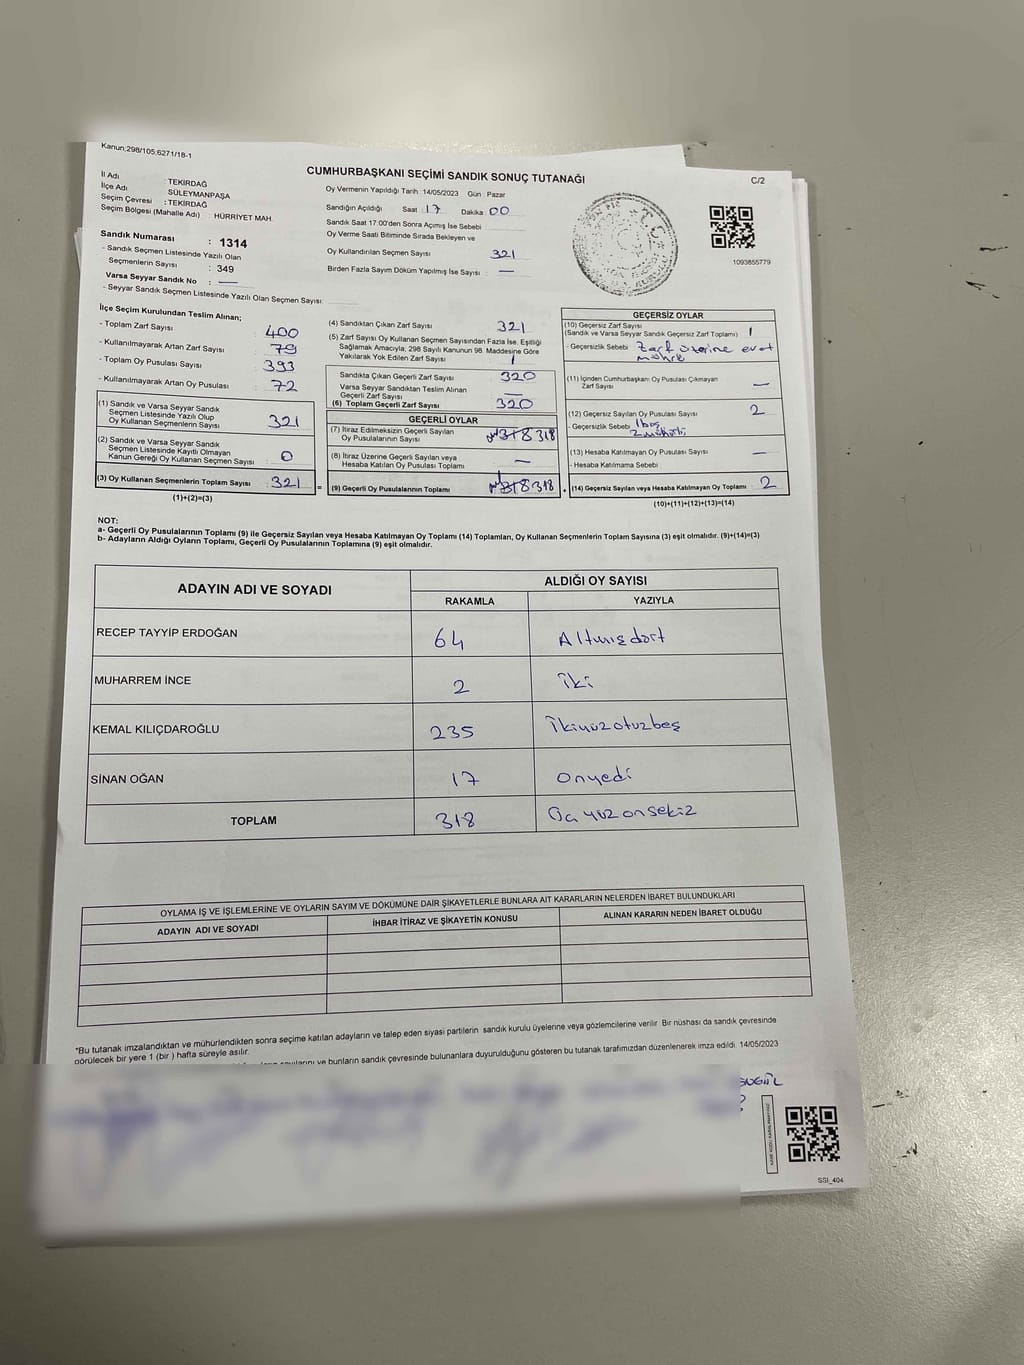 Kanun;298/105,6271/18-1
CUMHURBAŞKANI SEÇİMİ SANDIK SONUÇ TUTANAĞI
C/2
İl Adı : TEKİRDAĞ
İlçe Adı : SÜLEYMANPAŞA
Seçim Çevresi : TEKİRDAĞ
Seçim Bölgesi (Mahalle Adı) : HÜRRİYET MAH
Sandık Numarası : 1314
- Sandık Seçmen Listesinde Yazılı Olan
Seçmenlerin Sayısı : 349
Varsa Seyyar Sandık No : —
- Seyyar Sandık Seçmen Listesinde Yazılı Olan Seçmen Sayısı:
Oy Vermenin Yapıldığı Tarih : 14/05/2023 Gün : Pazar
Sandığın Açıldığı Saat : 17 Dakika : 00
Sandık Saat 17:00'den Sonra Açımış İse Sebebi
Oy Verme Saati Bitiminde Sırada Bekleyen ve
Oy Kullandırılan Seçmen Sayısı 321
Birden Fazla Sayım Döküm Yapılmış İse Sayısı : —
T.C.
1093855779
İlçe Seçim Kurulundan Teslim Alınan;
- Toplam Zarf Sayısı : 400
- Kullanılmayarak Artan Zarf Sayısı : 79
- Toplam Oy Pusulası Sayısı : 393
- Kullanılmayarak Artan Oy Pusulası : 72
(1) Sandık ve Varsa Seyyar Sandık
Seçmen Listesinde Yazılı Olup
Oy Kullanan Seçmenlerin Sayısı : 321
(2) Sandık ve Varsa Seyyar Sandık
Seçmen Listesinde Kayıtlı Olmayan
Kanun Gereği Oy Kullanan Seçmen Sayısı : 0
(3) Oy Kullanan Seçmenlerin Toplam Sayısı : 321
(1)+(2)=(3)
(4) Sandıktan Çıkan Zarf Sayısı : 321
(5) Zarf Sayısı Oy Kullanan Seçmen Sayısından Fazla İse, Eşitliği
Sağlamak Amacıyla, 298 Sayılı Kanunun 98. Maddesine Göre
Yakılarak Yok Edilen Zarf Sayısı : 1
Sandıkta Çıkan Geçerli Zarf Sayısı : 320
Varsa Seyyar Sandıktan Teslim Alınan
Geçerli Zarf Sayısı : —
(6) Toplam Geçerli Zarf Sayısı : 320
GEÇERLİ OYLAR
(7) İtiraz Edilmeksizin Geçerli Sayılan
Oy Pusulalarının Sayısı : 318 318
(8) İtiraz Üzerine Geçerli Sayılan veya
Hesaba Katılan Oy Pusulası Toplamı : —
= (9) Geçerli Oy Pusulalarının Toplamı : 318 318
GEÇERSİZ OYLAR
(10) Geçersiz Zarf Sayısı
(Sandık ve Varsa Seyyar Sandık Geçersiz Zarf Toplamı) : 1
- Geçersizlik Sebebi : Zarf üzerine evet
mührü
(11) İçinden Cumhurbaşkanı Oy Pusulası Çıkmayan
Zarf Sayısı : —
(12) Geçersiz Sayılan Oy Pusulası Sayısı : 2
- Geçersizlik Sebebi : 1 boş
2 mühürlü
(13) Hesaba Katılmayan Oy Pusulası Sayısı : —
- Hesaba Katılmama Sebebi :
(14) Geçersiz Sayılan veya Hesaba Katılmayan Oy Toplamı : 2
(10)+(11)+(12)+(13)=(14)
NOT:
a- Geçerli Oy Pusulalarının Toplamı (9) ile Geçersiz Sayılan veya Hesaba Katılmayan Oy Toplamı (14) Toplamları, Oy Kullanan Seçmenlerin Toplam Sayısına (3) eşit olmalıdır. (9)+(14)=(3)
b- Adayların Aldığı Oyların Toplamı, Geçerli Oy Pusulalarının Toplamına (9) eşit olmalıdır.
ADAYIN ADI VE SOYADI
ALDIĞI OY SAYISI
RAKAMLA YAZIYLA
RECEP TAYYİP ERDOĞAN 64 Altmışdört
MUHARREM İNCE 2 iki
KEMAL KILIÇDAROĞLU 235 İkiyüzotuzbeş
SİNAN OĞAN 17 onyedi
TOPLAM 318 Üç yüz onsekiz
OYLAMA İŞ VE İŞLEMLERİNE VE OYLARIN SAYIM VE DÖKÜMÜNE DAİR ŞİKAYETLERLE BUNLARA AİT KARARLARIN NELERDEN İBARET BULUNDUKLARI
ADAYIN ADI VE SOYADI İHBAR İTİRAZ VE ŞİKAYETİN KONUSU ALINAN KARARIN NEDEN İBARET OLDUĞU
*Bu tutanak imzalandıktan ve mühürlendikten sonra seçime katılan adayların ve talep eden siyasi partilerin sandık kurulu üyelerine veya gözlemcilerine verilir. Bir nüshası da sandık çevresinde
görülecek bir yere 1 (bir ) hafta süreyle asılır.
ve bunların sandık çevresinde bulunanlara duyurulduğunu gösteren bu tutanak tarafımızdan düzenlenerek imza edildi. 14/05/2023
SSI_404